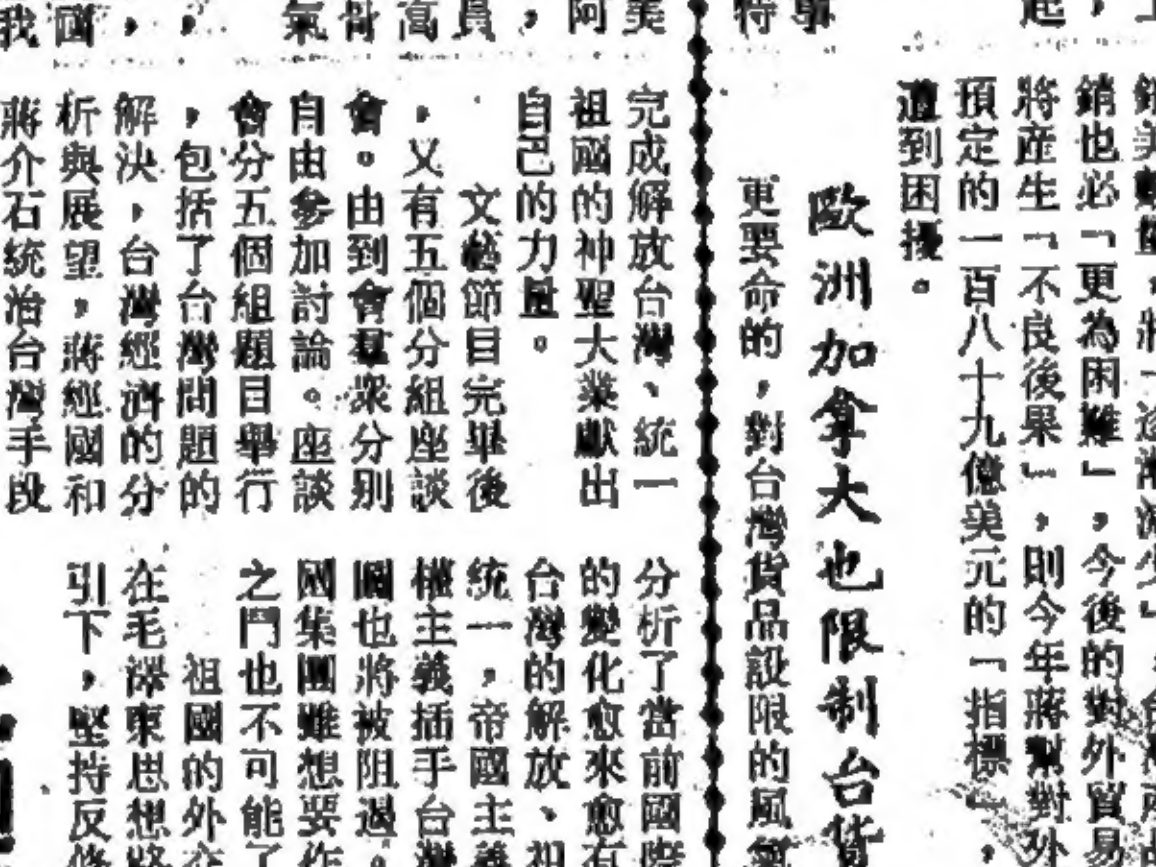 銷也必「更為困難」,今後的對外貿易
將產生「不良後果」,則今年蔣幫對外
預定的一百八十九億美元的「指標」,
遭到困擾。
歐洲加拿大也限制台貨
更要命的,對台灣貨品設限的風氣
完成解放台灣、統一
祖國的神聖大業獻出
自己的力量。
文藝節目完畢後
,又有五個分組座談
會。由到會羣眾分別
自由參加討論。座談
會分五個組題目舉行
,包括了台灣問題的
解決,台灣經濟的分
析與展望,蔣經國和
蔣介石統治台灣手段
分析了當前國際
的變化愈來愈有
台灣的解放、祖
統一,帝國主義
權主義插手台灣
圖也將被阻遏。
國集團雖想要作
之鬥也不可能了
祖國的外交
在毛澤東思想
引下,堅持反修